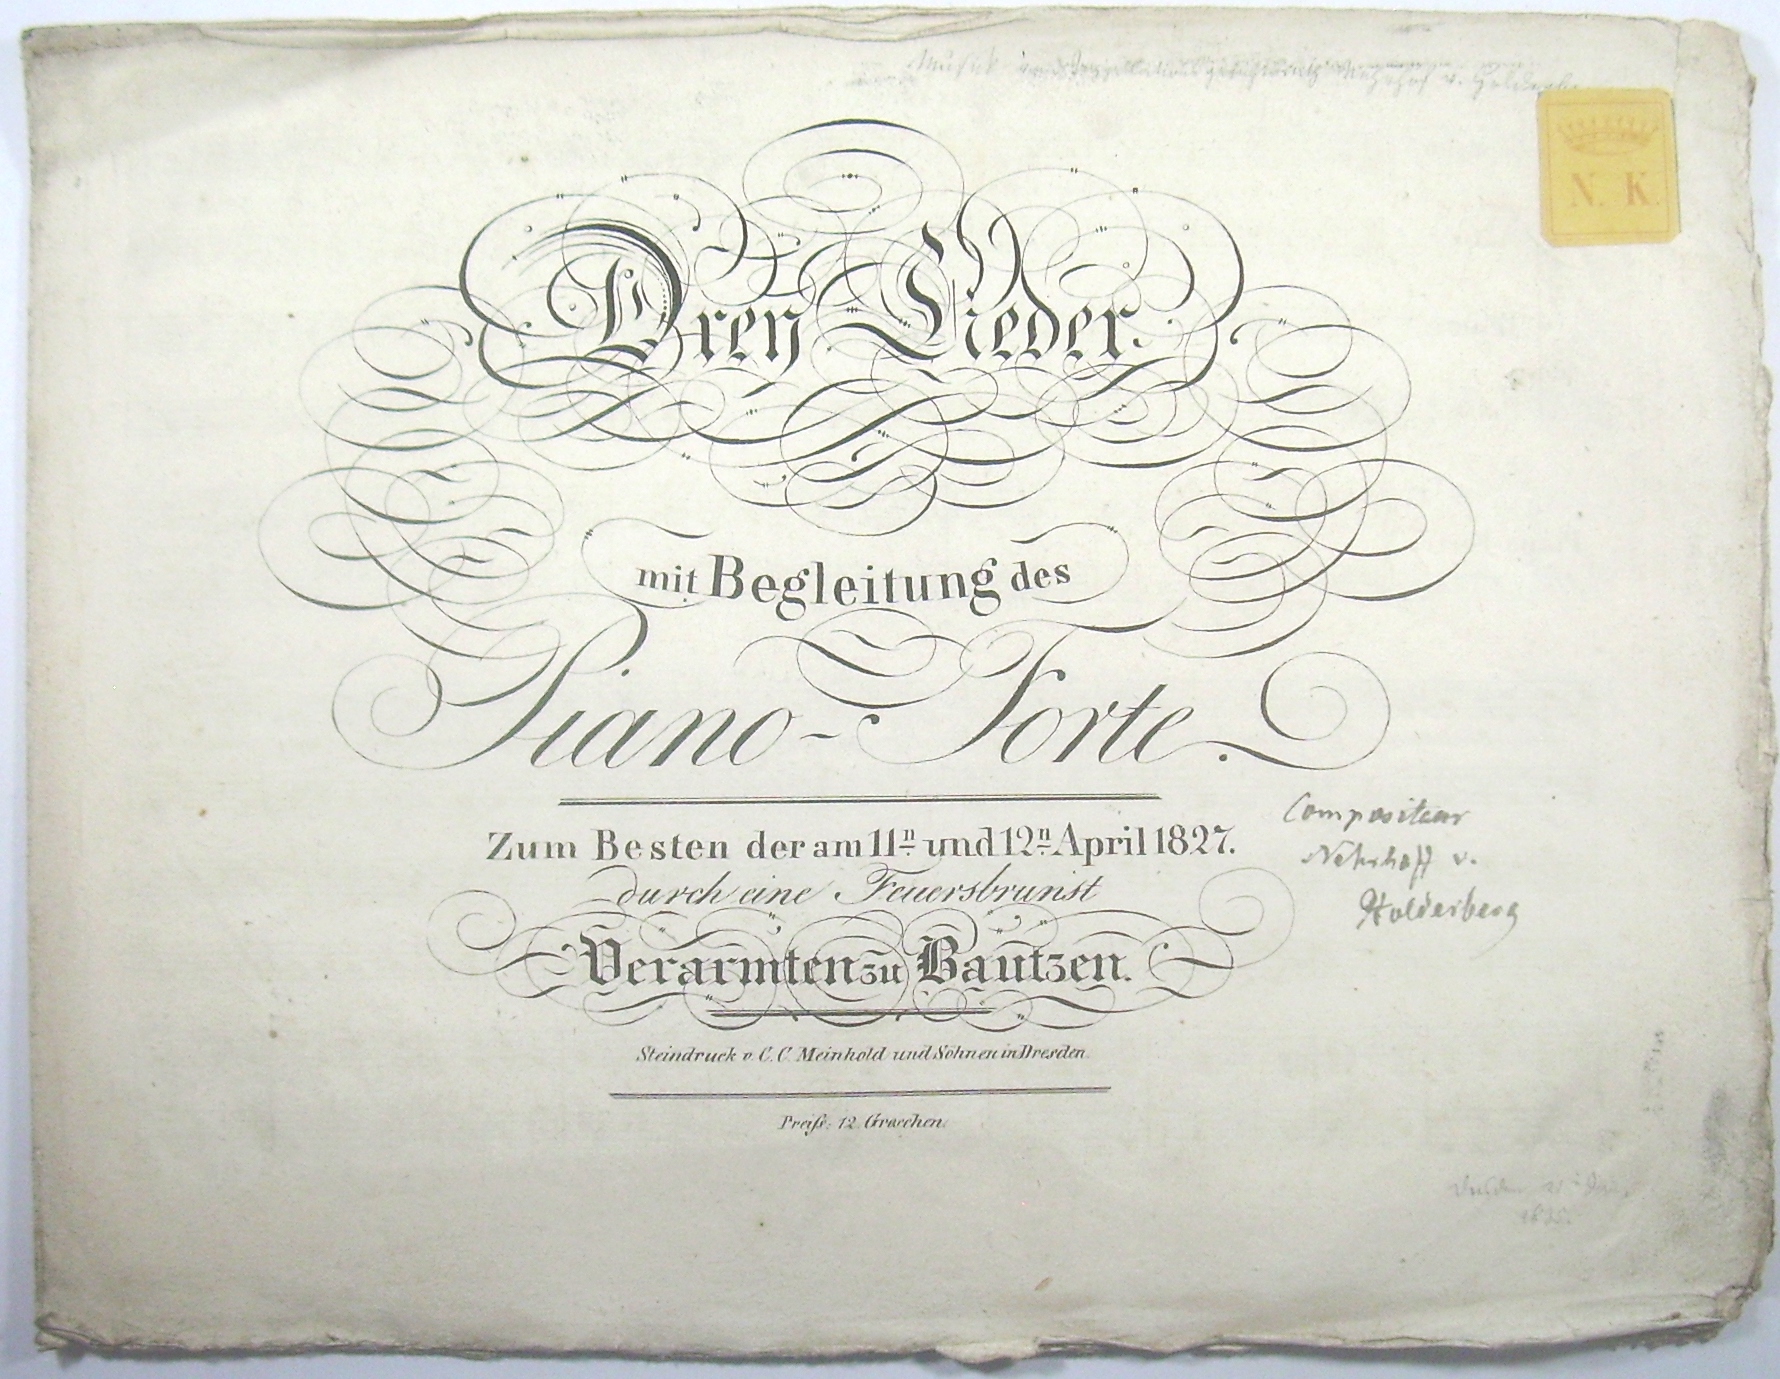 Musik
N. K.
Drey Lieder.
mit Begleitung des
Piano-Forte.
Zum Besten der am 11n. und 12n. April 1827.
durch eine Feuersbrunst
Verarmten zu Bautzen.
Steindruck v. C. C. Meinhold und Söhnen in Dresden.
Preiſs: 12. Groschen.
Compositeur
Nehrhoff v.
Holderberg